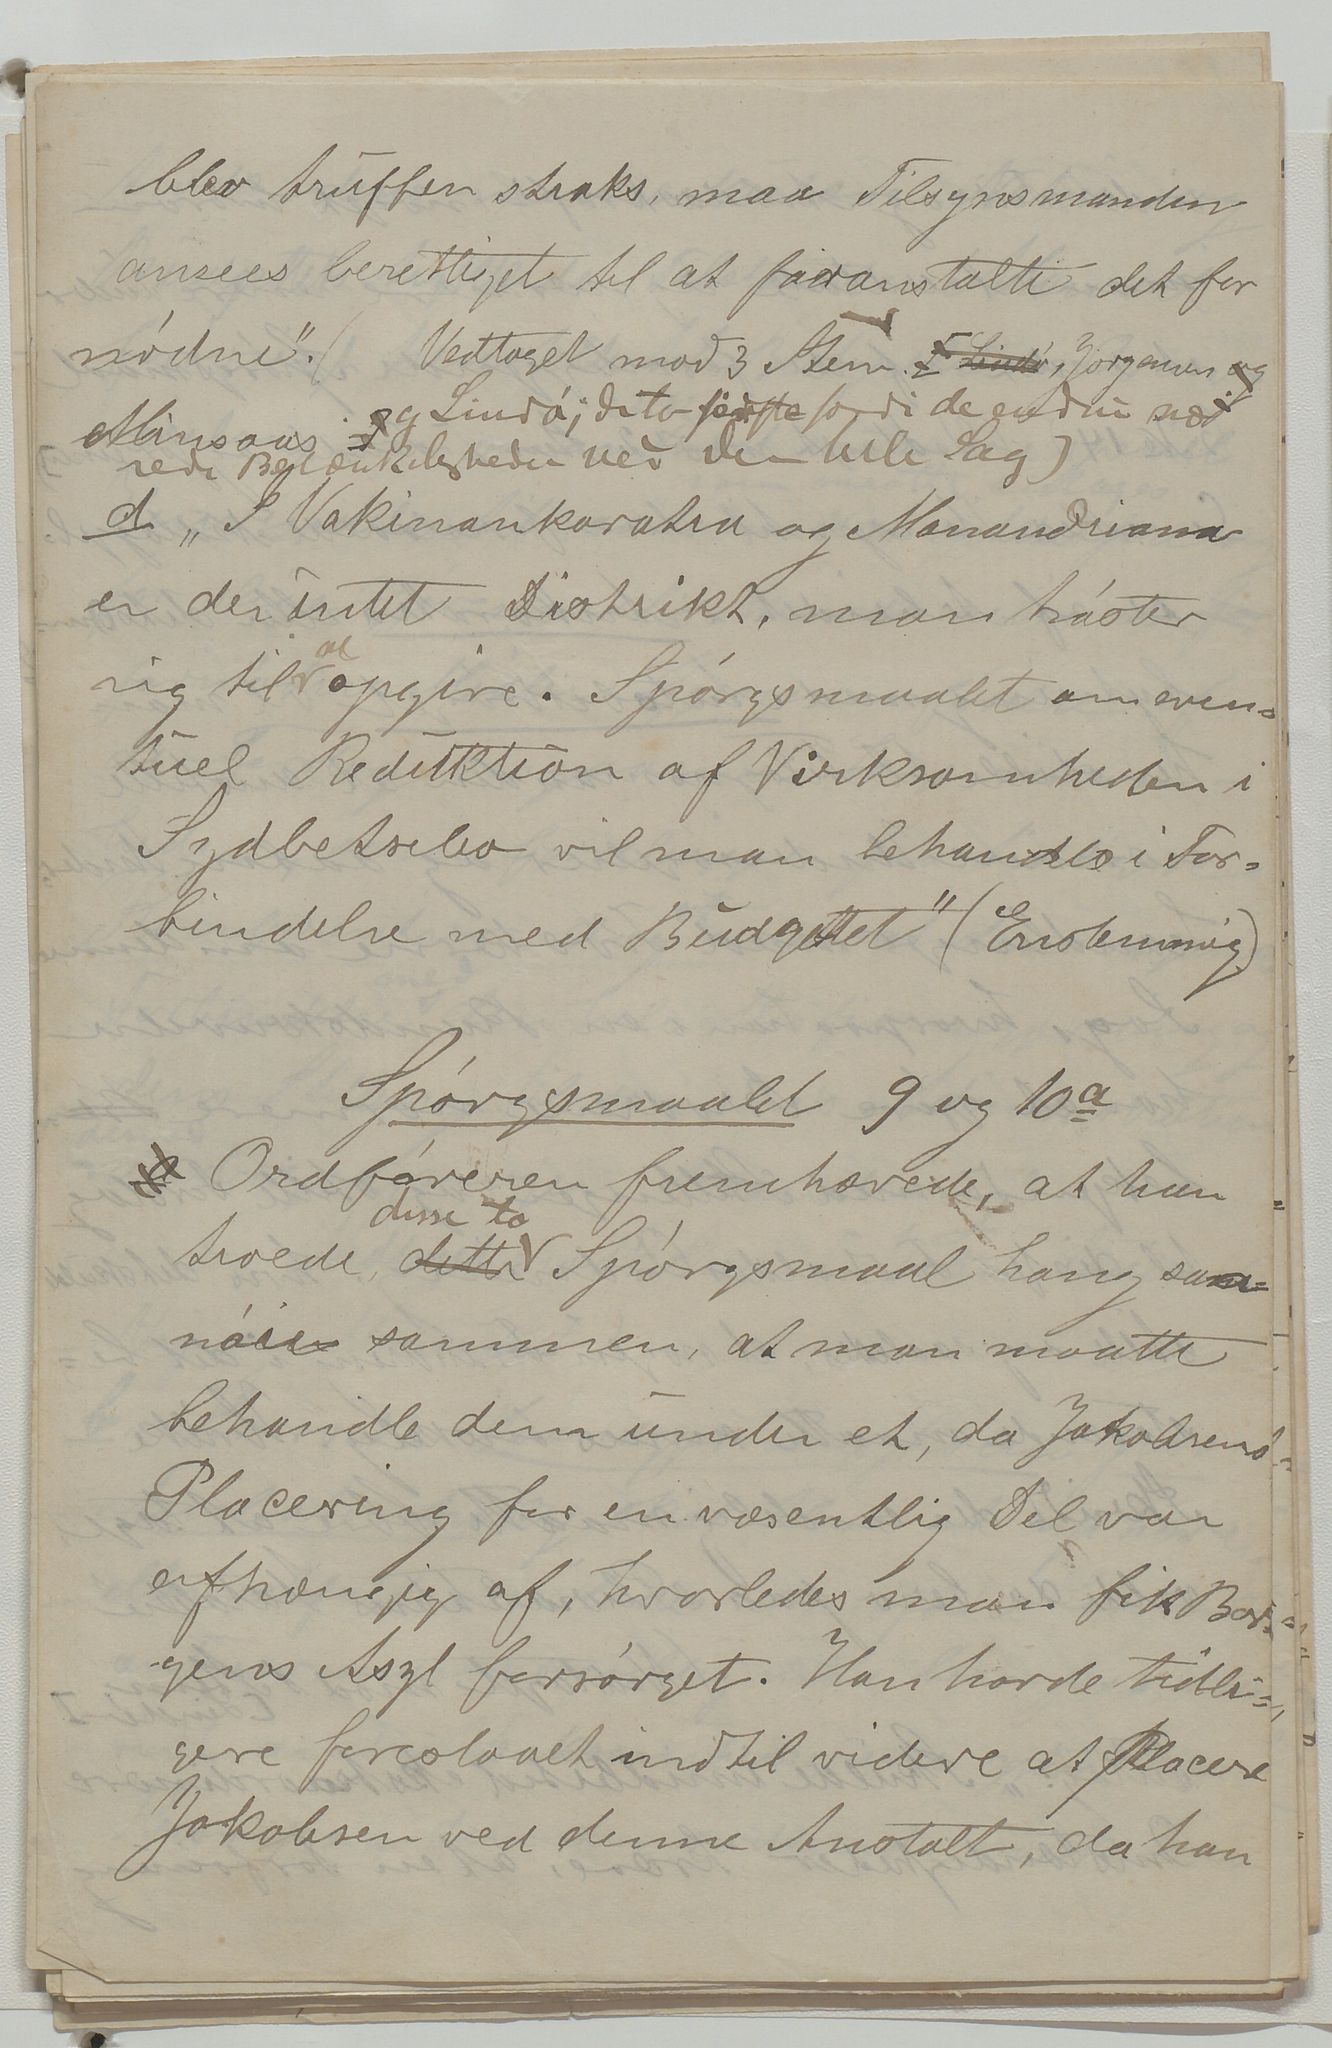 blev truffen straks, maa Tilsynsmanden
ansees berettiget til at foranstalte det for
nødne". ( Vedtaget mod 3 Stem. Lindø, Jørgensen og
Minsaas og Lindø; de to sidste fordi de endnu næ
rede Betænkeligheder ved den hele Sag)
d „I Vakinankaratra og Manandriana
er der intet Distrikt, man trøster
sig til at opgive. Spørgsmaalet om even-
tuel Reduktion af Virksomheden i
Sydbetsileo vil man behandle i For-
bindelse med Budgettet" (Enstemmig)
Spørgsmaalet 9 og 10a
Ordføreren fremhævede, at han
disse to
troede, dette Spørgsmaal hang saa
nøie sammen, at man maatte
behandle dem under et, da Jakobsens
Placering for en væsentlig Del var
afhængig af, hvorledes man fik Bor-
gens Asyl forsørget. Han havde tidli-
gere foreslaaet indtil videre at Placere
Jakobsen ved denne Anstalt, da han